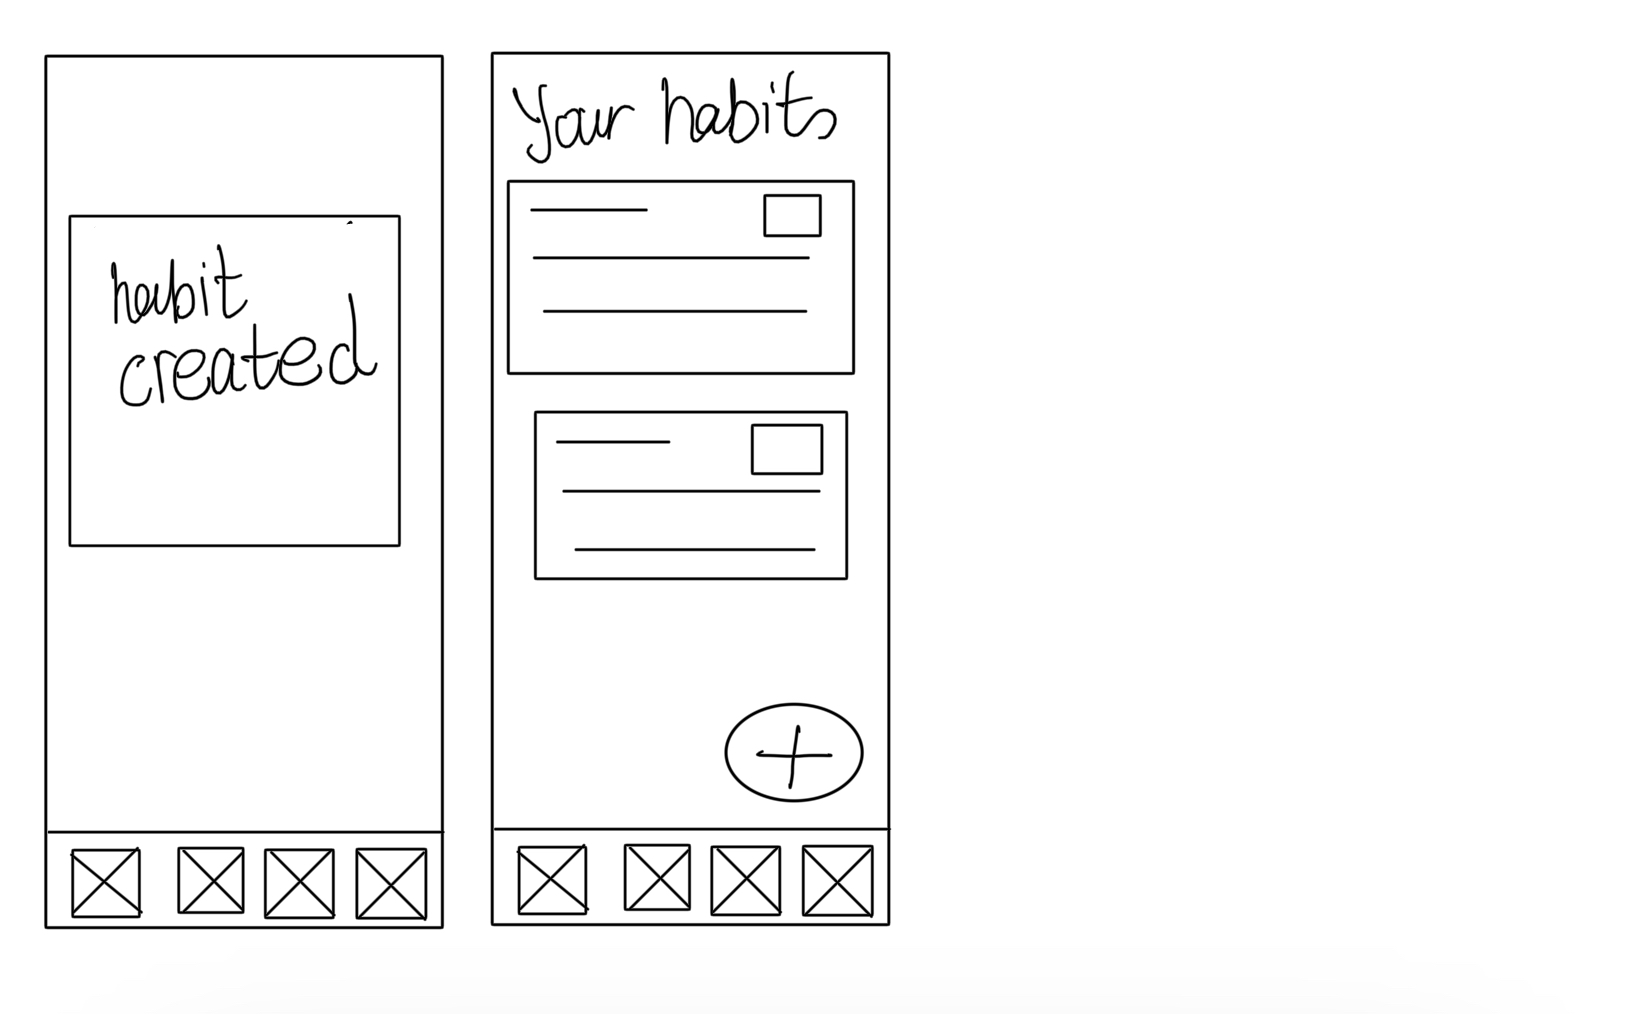 habit
created
Your habits